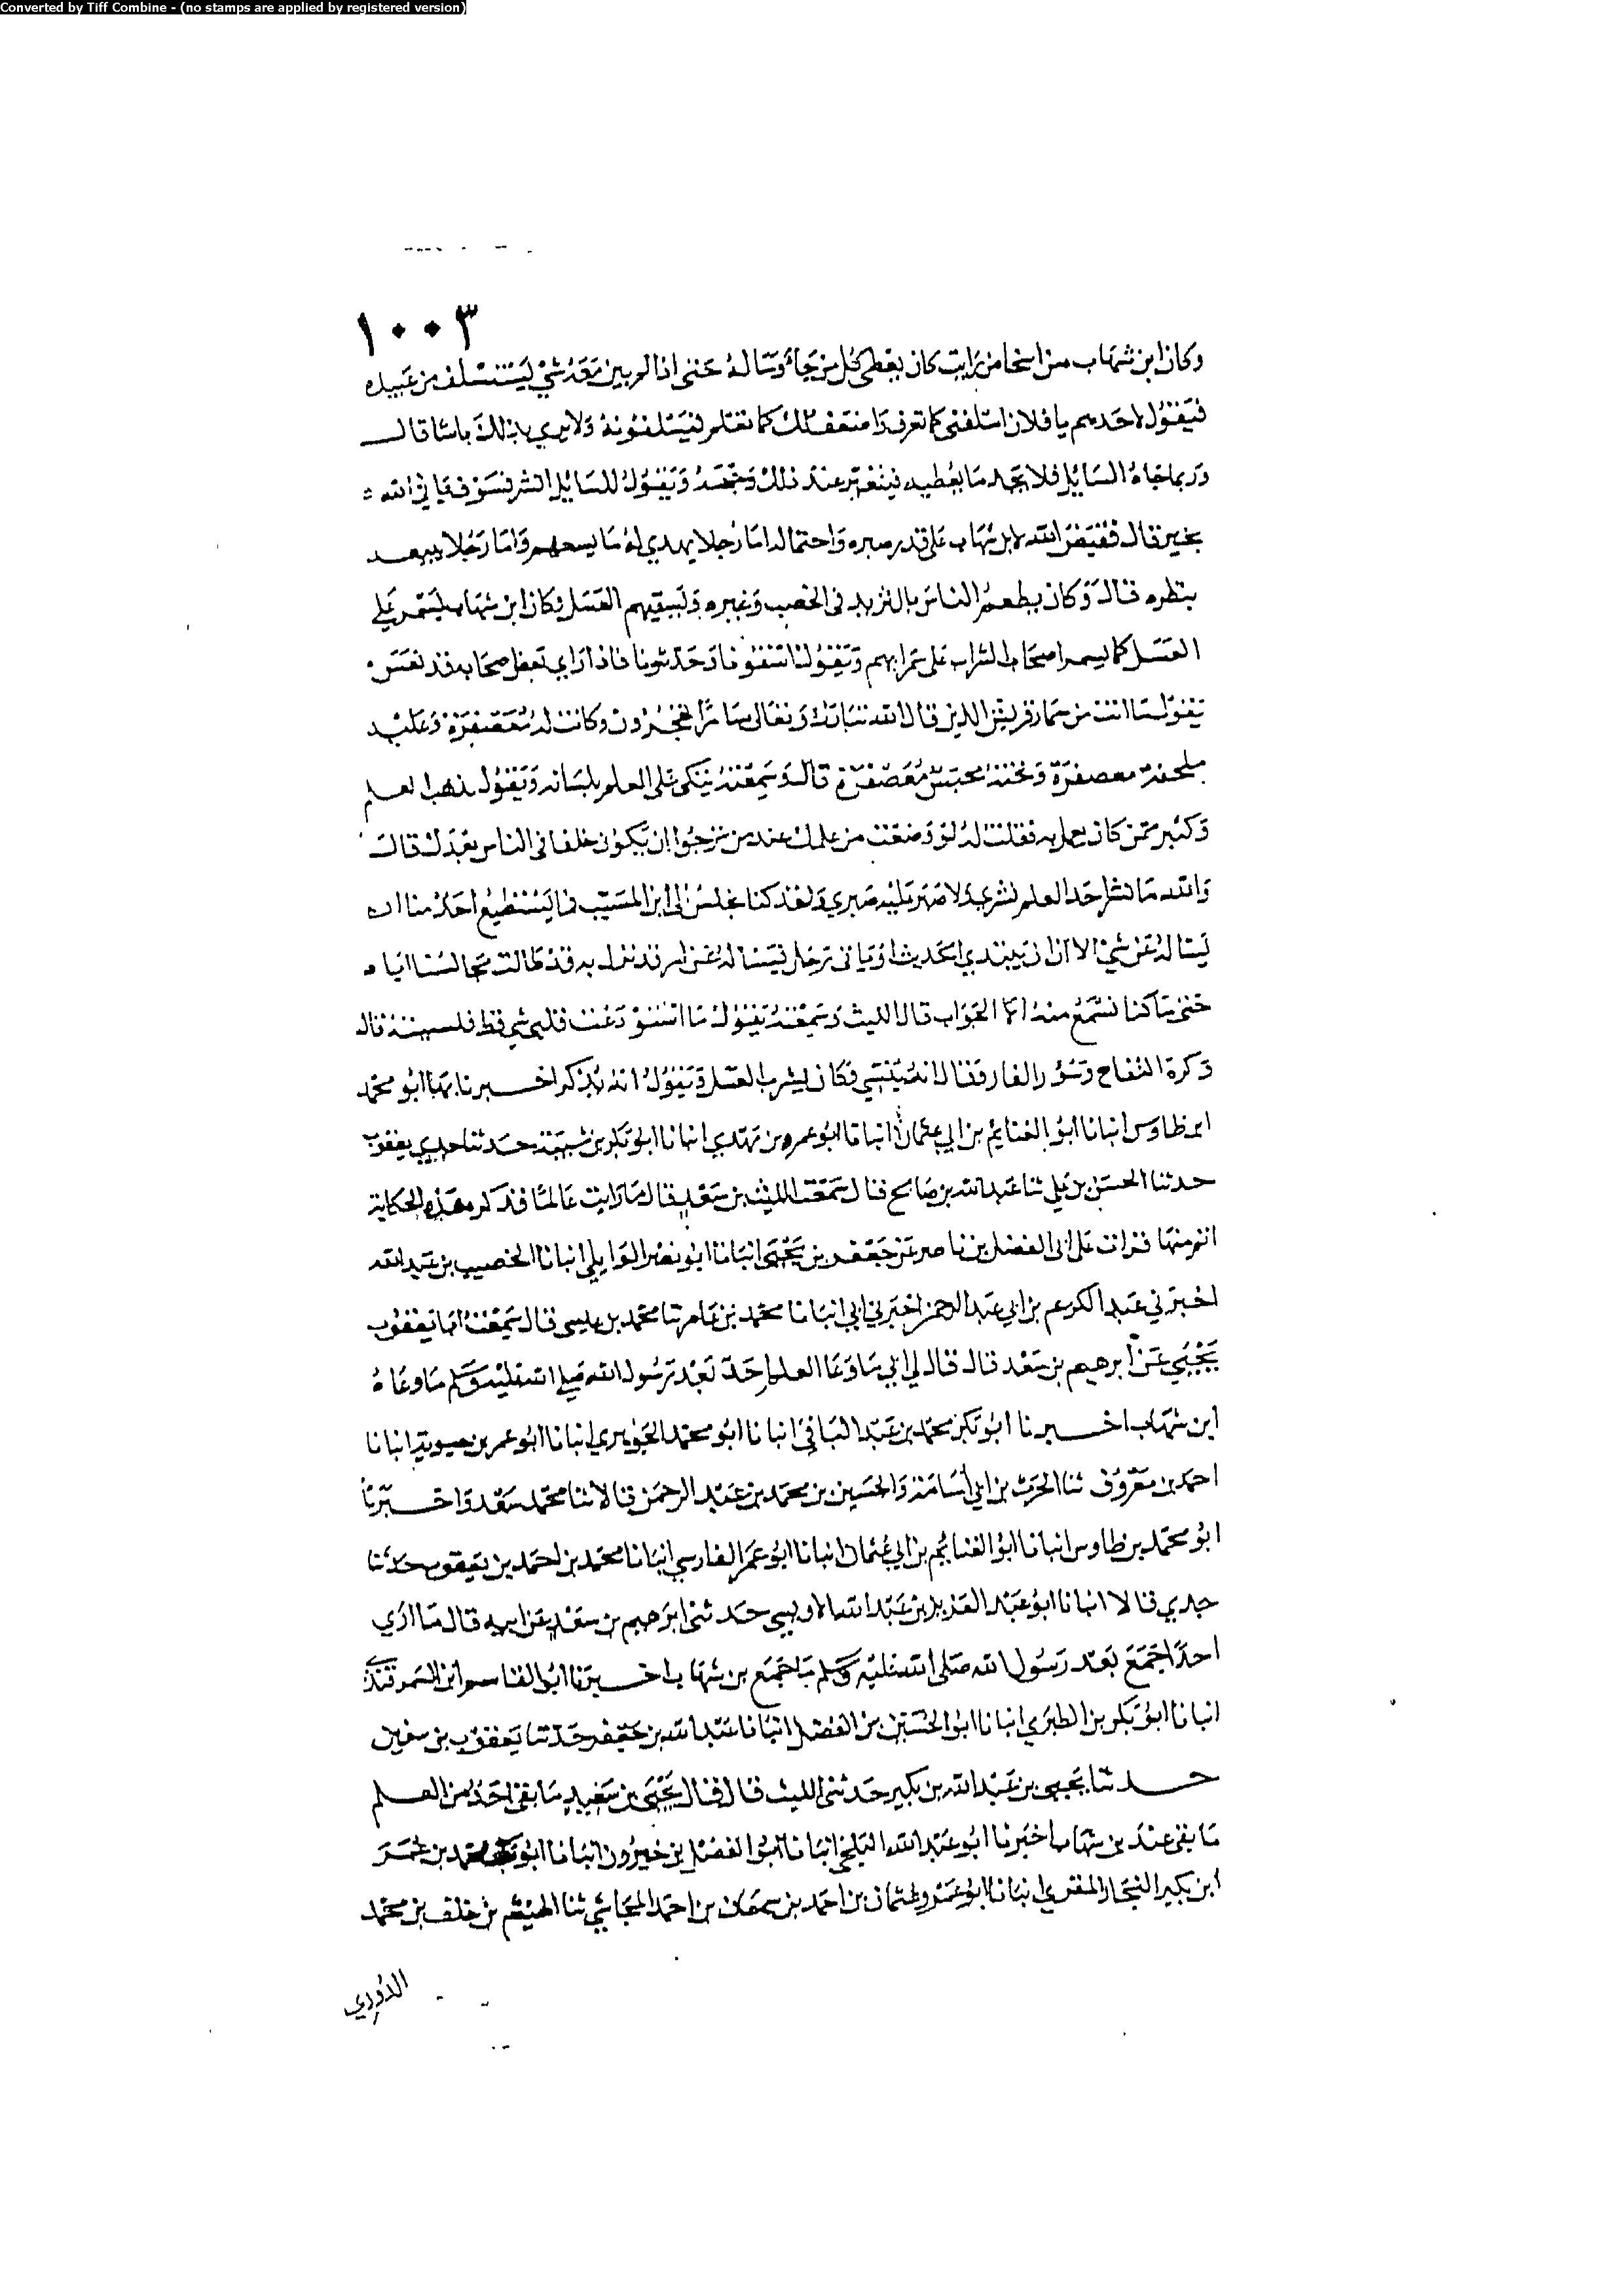 Converted by Tiff Combine - (no stamps are applied by registered version)
١٠٠٣
وكان ابن شهاب من اسخا من رايت كان يعطي كل من جاه وساله حتى اذا لم يبق معه شي ليستسلف من عبيده
فيقول لاحدهم يا فلان اسلفني كما تعرف واضعف لك كما تعلم فيسلفونه ولا يري بذلك باسا قال
وربما جاه السايل فلا يجد ما يعطيه فيتغير عند ذلك وجهه ويقول للسايل ابشر فسوف ياتي الله
بخير قال فقيض الله لابن شهاب على قدر صبره واحتماله اما رجلا يهدي له ما يسعهم واما رجلا يبيعه
بنظره قال وكان يطعم الناس بالثريد في الخصب وغيره ويسقيهم العسل وكان ابن شهاب يسمر علي
العسل كما يسمر اصحاب الشراب على شرابهم ويقول اسقونا وحدثونا فاذا راي بعض اصحابه قد نعس
يقول ما انت من سمار قريش الذين قال الله تبارك وتعالى سامرا تهجرون وكانت له معصفرة وعليه
ملحفة معصفرة وتحته محبس معصفرة قال وسمعته يبكي على العلم بلسانه ويقول يذهب العلم
وكثير ممن كان يعمل به فقلت له لو وضعت من علمك عند من ترجوا ان يكون خلفا في الناس بعدك قال
والله ما نشر احد العلم نشري ولا صبر عليه صبري ولقد كنا نجلس الى ابن المسيب فما يستطيع احد منا ان
يساله عن شي الا ان يبتدي الحديث او ياتي رجل فيساله عن امر قد نزل به فقد طالت مجالستنا اياه
حتى ما كنا نسمع منه الا الجواب قال الليث وسمعته يقول ما استودعت قلبي شي قط فنسيته قال
وكره التفاح وسؤر الفار وقال انه ينسي وكان يشرب العسل ويقول انه يذكر اخبرنا بها ابو محمد
ابن طاوس انبانا ابو الغنايم بن ابي عثمان انبانا ابو عمر بن مهدي انبانا ابو بكر بن شيبة حدثنا جدي يعقوب
حدثنا الحسن بن علي ثنا عبد الله بن صالح قال سمعت الليث بن سعد يقال ما رايت عالما فذكر هذه الحكاية
اتم منها قرات على ابي الفضل بن ناصر عن جعفر بن يحيى انبانا ابو نصر الوايلي انبانا الخصيب بن عبد الله
اخبرني عبد الكريم بن ابي عبد الرحمن اخبرني ابي انبانا محمد بن عامر ثنا محمد بن عيسى قال سمعت ابا يعقوب
يحيي عن ابرهيم بن سعد قال قال لي ابي ما وعا العلم احد بعد رسول الله صلى الله عليه وسلم ما وعاه
ابن شهاب اخبرنا ابو بكر محمد بن عبد الباقي انبانا ابو محمد الجوهري انبانا ابو عمر بن حيويه انبانا
احمد بن معروف ثنا الحرث بن ابي اسامة والحسين بن محمد بن عبد الرحمن قالا ثنا محمد سعد واخبرنا
ابو محمد بن طاوس انبانا ابو الغنايم بن ابي عثمان انبانا ابو عمر الفارسي انبانا محمد بن احمد بن يعقوب حدثنا
جدي قالا انبانا ابو عبد العزيز بن عبد الله الاويسي حدثني ابرهيم بن سعد عن ابيه قال ما اري
احدا جمع بعد رسول الله صلى الله عليه وسلم ما جمع بن شهاب اخبرنا ابو القاسم ابن السمرقندي
انبانا ابو بكر بن الطبري انبانا ابو الحسين بن الفضل انبانا عبد الله بن جعفر حدثنا يعقوب بن سفين
حدثنا يحيى بن عبد الله بن بكير حدثني الليث قال قال يحيى بن سعيد ما بقي احد من العلم
ما بقي عند بن شهاب اخبرنا ابو عبد الله البلخي انبانا ابو الفضل بن خيرون انبانا ابو بكر محمد بن عمر
ابن بكير النجار المقري انبانا ابو عمرو عثمان بن احمد بن سمعان بن احمد المجاشي ثنا الهيثم بن خلف بن محمد
الدوري